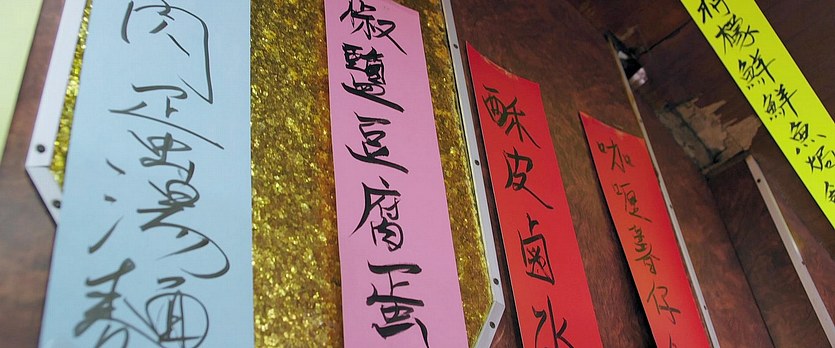 肉蛋湯麵
椒鹽豆腐蛋
酥皮鹵水
咖喱薯仔
檬鮮鮮魚焗